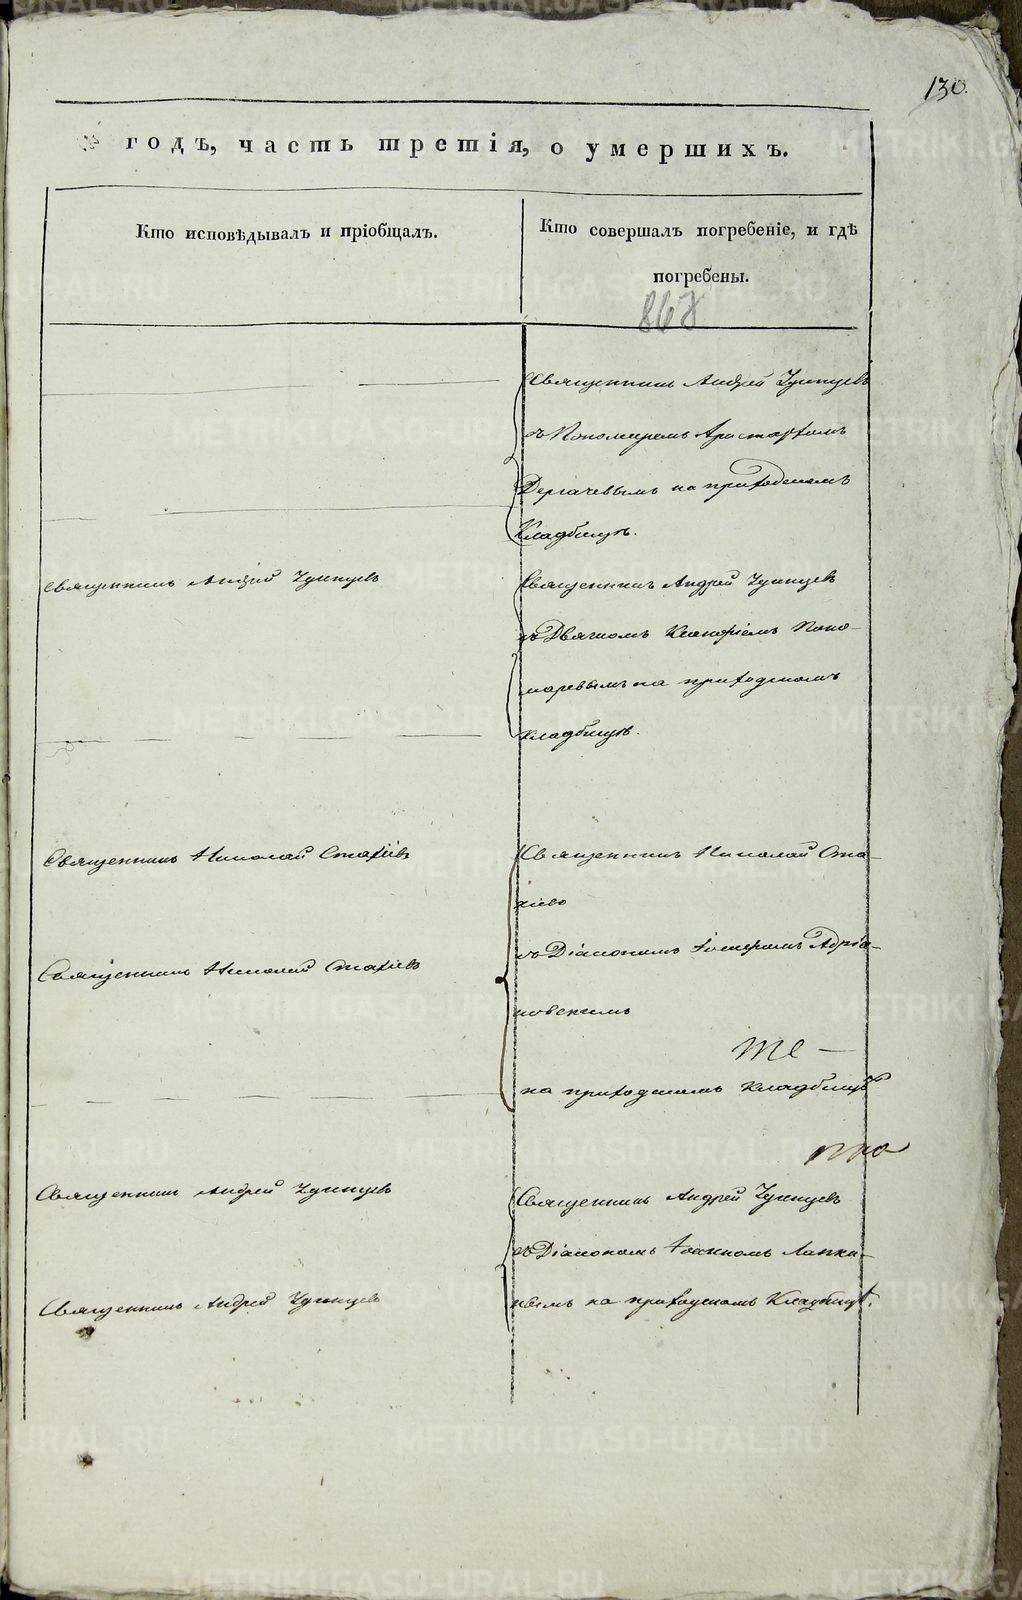 130.
годъ, часть третія, о умершихъ.
Кто исповѣдывалъ и пріобщалъ.
Кто совершалъ погребеніе, и гдѣ
погребены.
867
Священникъ Андрей Чупцевъ
съ Пономаремъ Аристархомъ
Дергачевымъ на приходскомъ
Кладбищѣ.
Священникъ Андрей Чупцевъ
Священникъ Андрей Чупцевъ
съ Дьячкомъ Поно-
маревымъ на приходскомъ
кладбищѣ.
Священникъ Николай Стахіевъ
Священникъ Николай Ста-
хіевъ
съ Діакономъ Адріа-
Священникъ Николай Стахіевъ
новскимъ
на приходскомъ Кладбищѣ
Священникъ Андрей Чупцевъ
Священникъ Андрей Чупцевъ
съ Діакономъ Іоанномъ Лапки-
Священникъ Андрей Чупцевъ
нымъ на приходскомъ Кладбищѣ.
METRIKI.GASO-URAL.RU